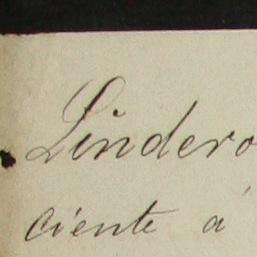 Lindero
ciente á